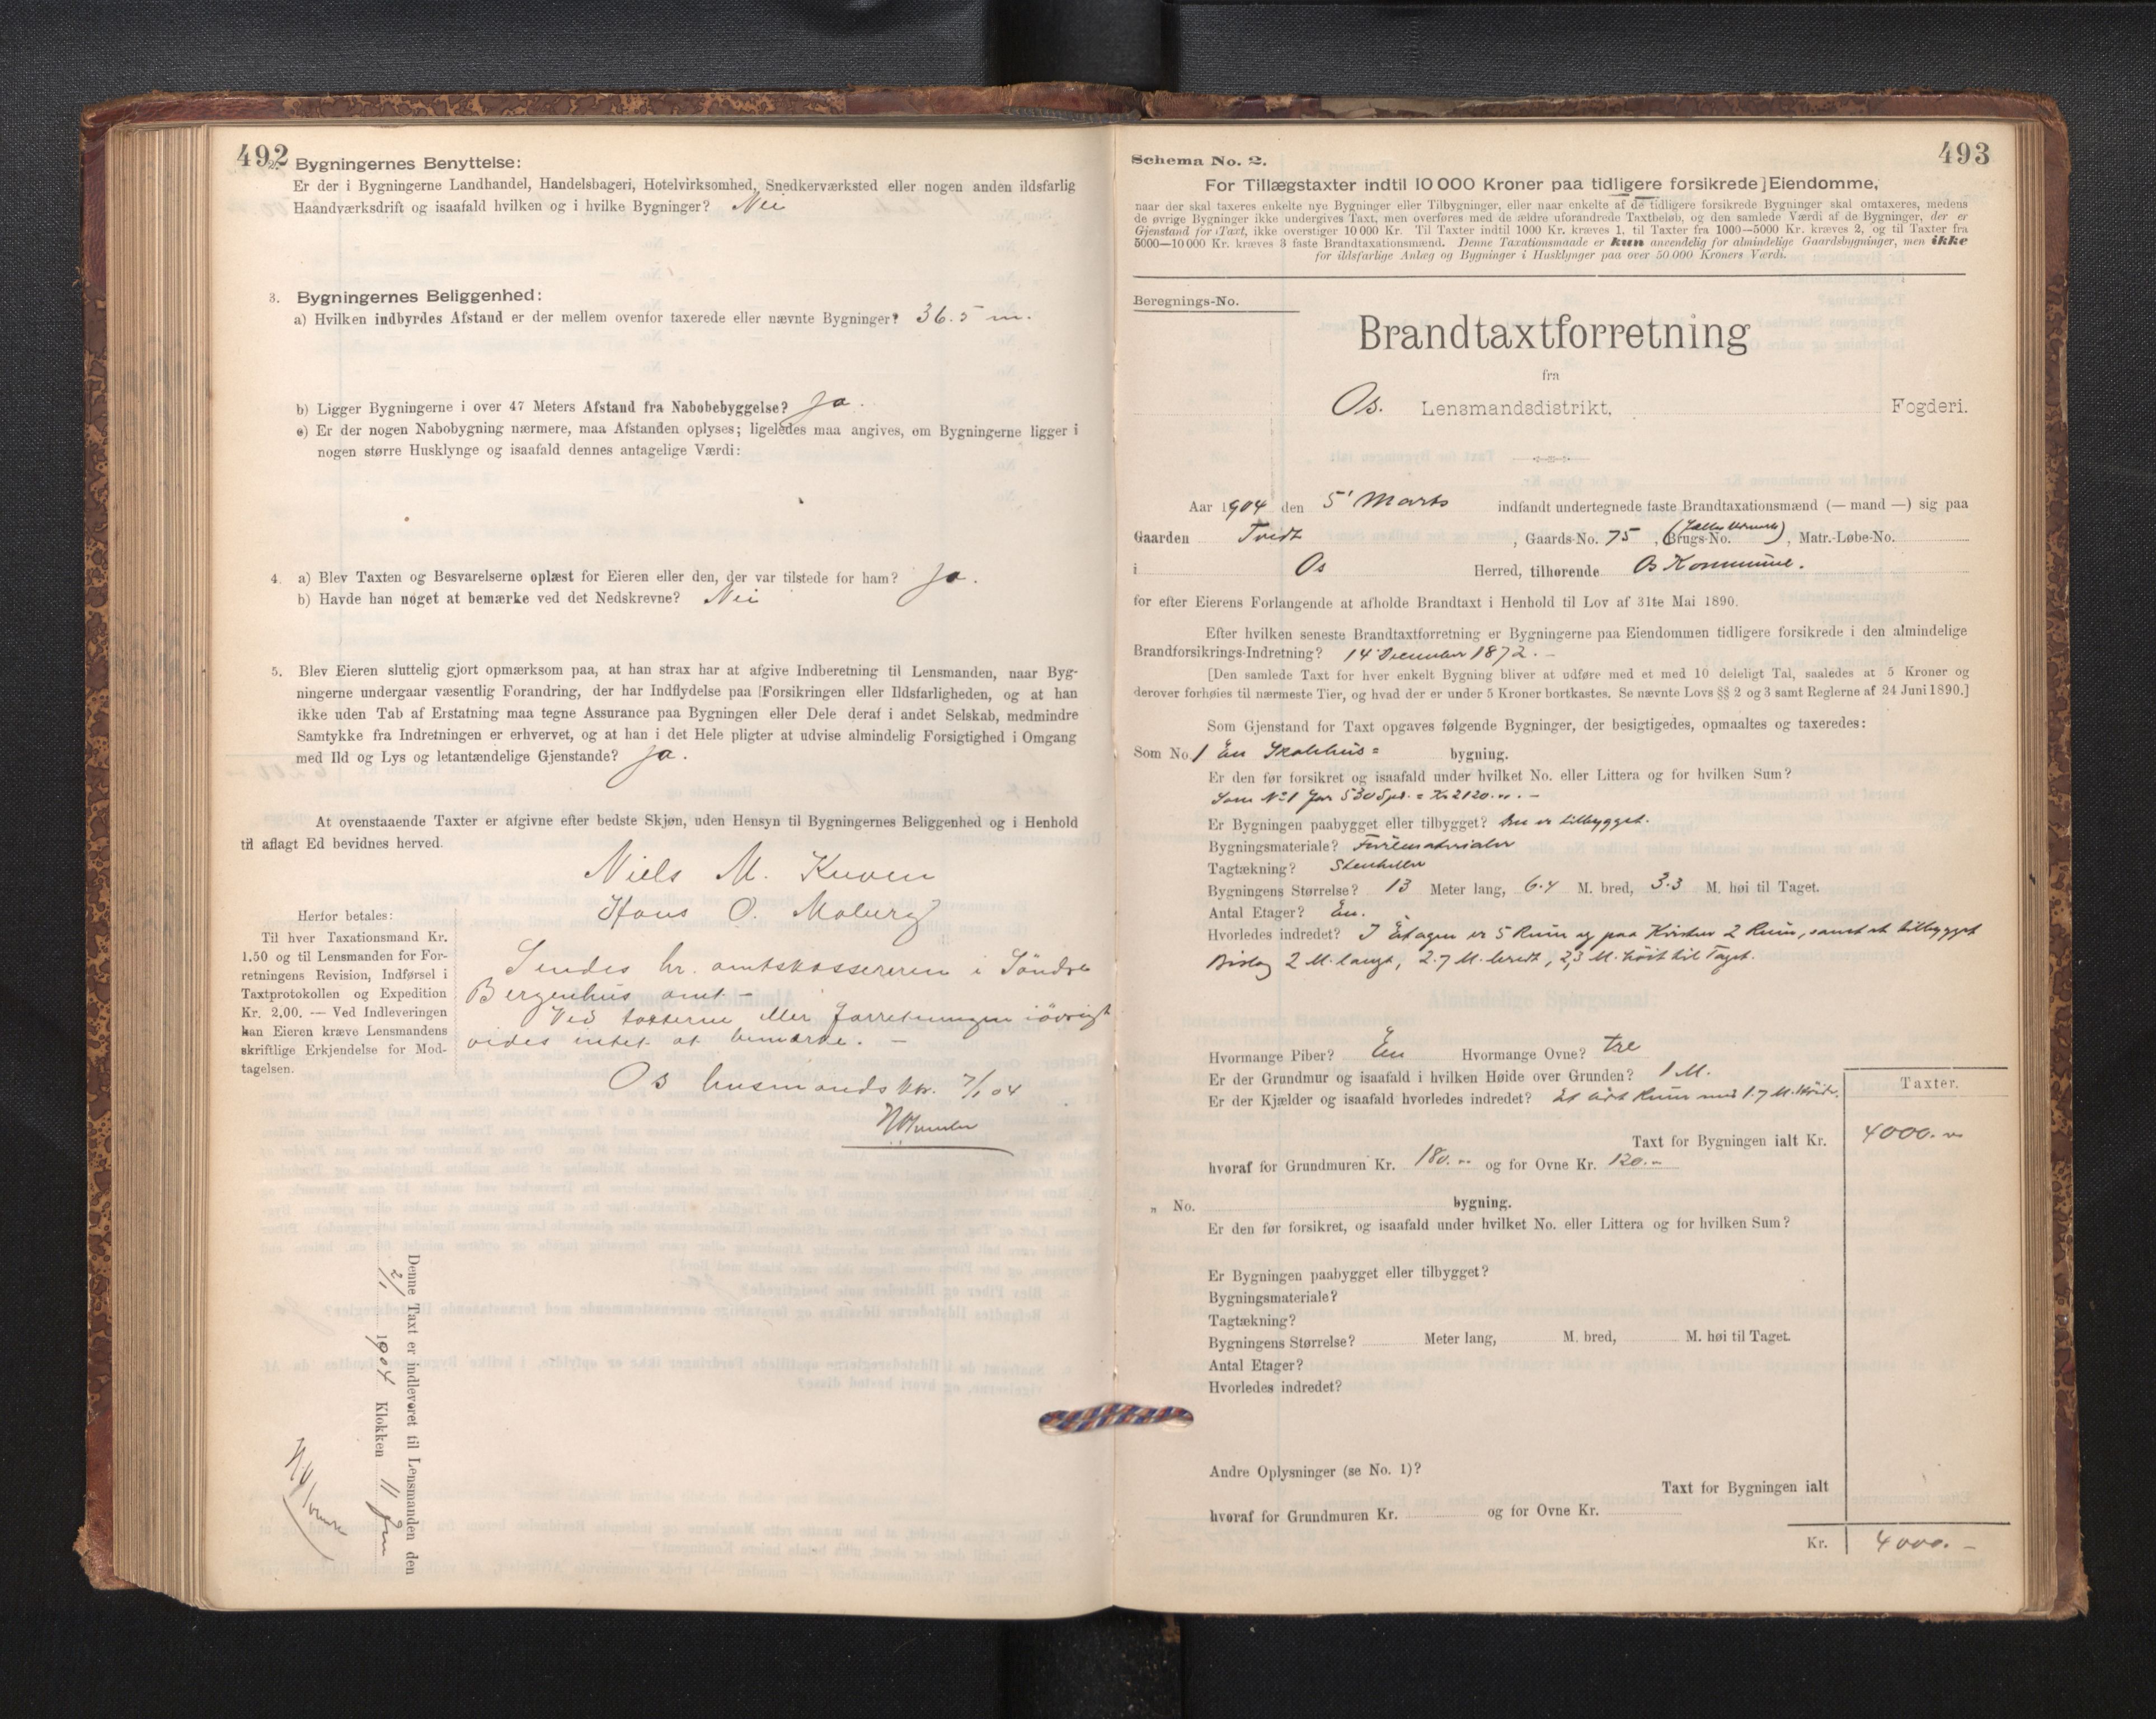 492
2. Bygningernes Benyttelse:
Er der i Bygningerne Landhandel, Handelsbageri, Hotelvirksomhed, Snedkerværksted eller nogen anden ildsfarlig
Haandværksdrift og isaafald hvilken og i hvilke Bygninger? Nei
3. Bygningernes Beliggenhed:
a) Hvilken indbyrdes Afstand er der mellem ovenfor taxerede eller nævnte Bygninger? 36.5 m.
b) Ligger Bygningerne i over 47 Meters Afstand fra Nabobebyggelse? Ja.
c) Er der nogen Nabobygning nærmere, maa Afstanden oplyses; ligeledes maa angives, om Bygningerne ligger i
nogen større Husklynge og isaafald dennes antagelige Værdi:
4. a) Blev Taxten og Besvarelserne oplæst for Eieren eller den, der var tilstede for ham? Ja.
b) Havde han noget at bemærke ved det Nedskrevne? Nei
5. Blev Eieren sluttelig gjort opmærksom paa, at han strax har at afgive Indberetning til Lensmanden, naar Byg-
ningerne undergaar væsentlig Forandring, der har Indflydelse paa [Forsikringen eller Ildsfarligheden, og at han
ikke uden Tab af Erstatning maa tegne Assurance paa Bygningen eller Dele deraf i andet Selskab, medmindre
Samtykke fra Indretningen er erhvervet, og at han i det Hele pligter at udvise almindelig Forsigtighed i Omgang
med Ild og Lys og letantændelige Gjenstande? Ja.
At ovenstaaende Taxter er afgivne efter bedste Skjøn, uden Hensyn til Bygningernes Beliggenhed og i Henhold
til aflagt Ed bevidnes herved.
Niels M. Kuven
Hans O. Moberg
Herfor betales:
Til hver Taxationsmand Kr.
1.50 og til Lensmanden for For-
retningens Revision, Indførsel i
Taxtprotokollen og Expedition
Kr. 2.00. — Ved Indleveringen
kan Eieren kræve Lensmandens
skriftlige Erkjendelse for Mod-
tagelsen.
Sendes hr. amtskassereren i Söndre
Bergenhus amt. -
Ved taxterne eller forretningen iövrigt
vides intet at bemærke. -
Os lensmandsktr. 7/1 04
Denne Taxt er indleveret til Lensmanden den
2/1 1904 Klokken 11 Fm
493
Schema No. 2.
For Tillægstaxter indtil 10 000 Kroner paa tidligere forsikrede] Eiendomme,
naar der skal taxeres enkelte nye Bygninger eller Tilbygninger, eller naar enkelte af de tidligere forsikrede Bygninger skal omtaxeres, medens
de øvrige Bygninger ikke undergives Taxt, men overføres med de ældre uforandrede Taxtbeløb, og den samlede Værdi af de Bygninger, der er
Gjenstand for Taxt, ikke overstiger 10 000 Kr. Til Taxter indtil 1000 Kr. kræves 1, til Taxter fra 1000—5000 Kr. kræves 2, og til Taxter fra
5000—10 000 Kr. kræves 3 faste Brandtaxationsmænd. Denne Taxationsmaade er kun anvendelig for almindelige Gaardsbygninger, men ikke
for ildsfarlige Anlæg og Bygninger i Husklynger paa over 50 000 Kroners Værdi.
Beregnings-No.
Brandtaxtforretning
fra
Os. Lensmandsdistrikt, Fogderi.
Aar 1904 den 5' Marts indfandt undertegnede faste Brandtaxationsmænd (— mand —) sig paa
Gaarden Tvedt, Gaards-No. 75, (Brugs-No. ), Matr.-Løbe-No.
i Os Herred, tilhørende Os Kommune.
for efter Eierens Forlangende at afholde Brandtaxt i Henhold til Lov af 31te Mai 1890.
Efter hvilken seneste Brandtaxtforretning er Bygningerne paa Eiendommen tidligere forsikrede i den almindelige
Brandforsikrings-Indretning? 14 December 1872. -
[Den samlede Taxt for hver enkelt Bygning bliver at udføre med et med 10 deleligt Tal, saaledes at 5 Kroner og
derover forhøies til nærmeste Tier, og hvad der er under 5 Kroner bortkastes. Se nævnte Lovs §§ 2 og 3 samt Reglerne af 24 Juni 1890.]
Som Gjenstand for Taxt opgaves følgende Bygninger, der besigtigedes, opmaaltes og taxeredes:
Som No 1 En Skolehus= bygning.
Er den før forsikret og isaafald under hvilket No. eller Littera og for hvilken Sum?
Som No 1 for 530 Spd. = Kr 2120. -
Er Bygningen paabygget eller tilbygget? Den er tilbygget.
Bygningsmateriale? Furematerialer
Tagtækning? Stenheller
Bygningens Størrelse? 13 Meter lang, 6.4 M. bred, 3.3 M. høi til Taget.
Antal Etager? En.
Hvorledes indredet? I Etagen er 5 Rum og paa Kvisten 2 Rum, samt et tilbygget
Bislag 2 M. langt, 2.7 M. bredt, 2,3 M. höit til Taget.
Hvormange Piber? En Hvormange Ovne? tre
Er der Grundmur og isaafald i hvilken Høide over Grunden? 1 M.
Er der Kjælder og isaafald hvorledes indredet? Et Rum med 1.7 M. Höide.
Taxter.
Taxt for Bygningen ialt Kr. 4000. "
hvoraf for Grundmuren Kr. 180. " og for Ovne Kr. 120. "
" No. bygning.
Er den før forsikret, og isaafald under hvilket No. eller Littera og for hvilken Sum?
Er Bygningen paabygget eller tilbygget?
Bygningsmateriale?
Tagtækning?
Bygningens Størrelse? Meter lang, M. bred, M. høi til Taget.
Antal Etager?
Hvorledes indredet?
Andre Oplysninger (se No. 1)?
Taxt for Bygningen ialt
hvoraf for Grundmuren Kr. og for Ovne Kr.
Kr. 4000. -